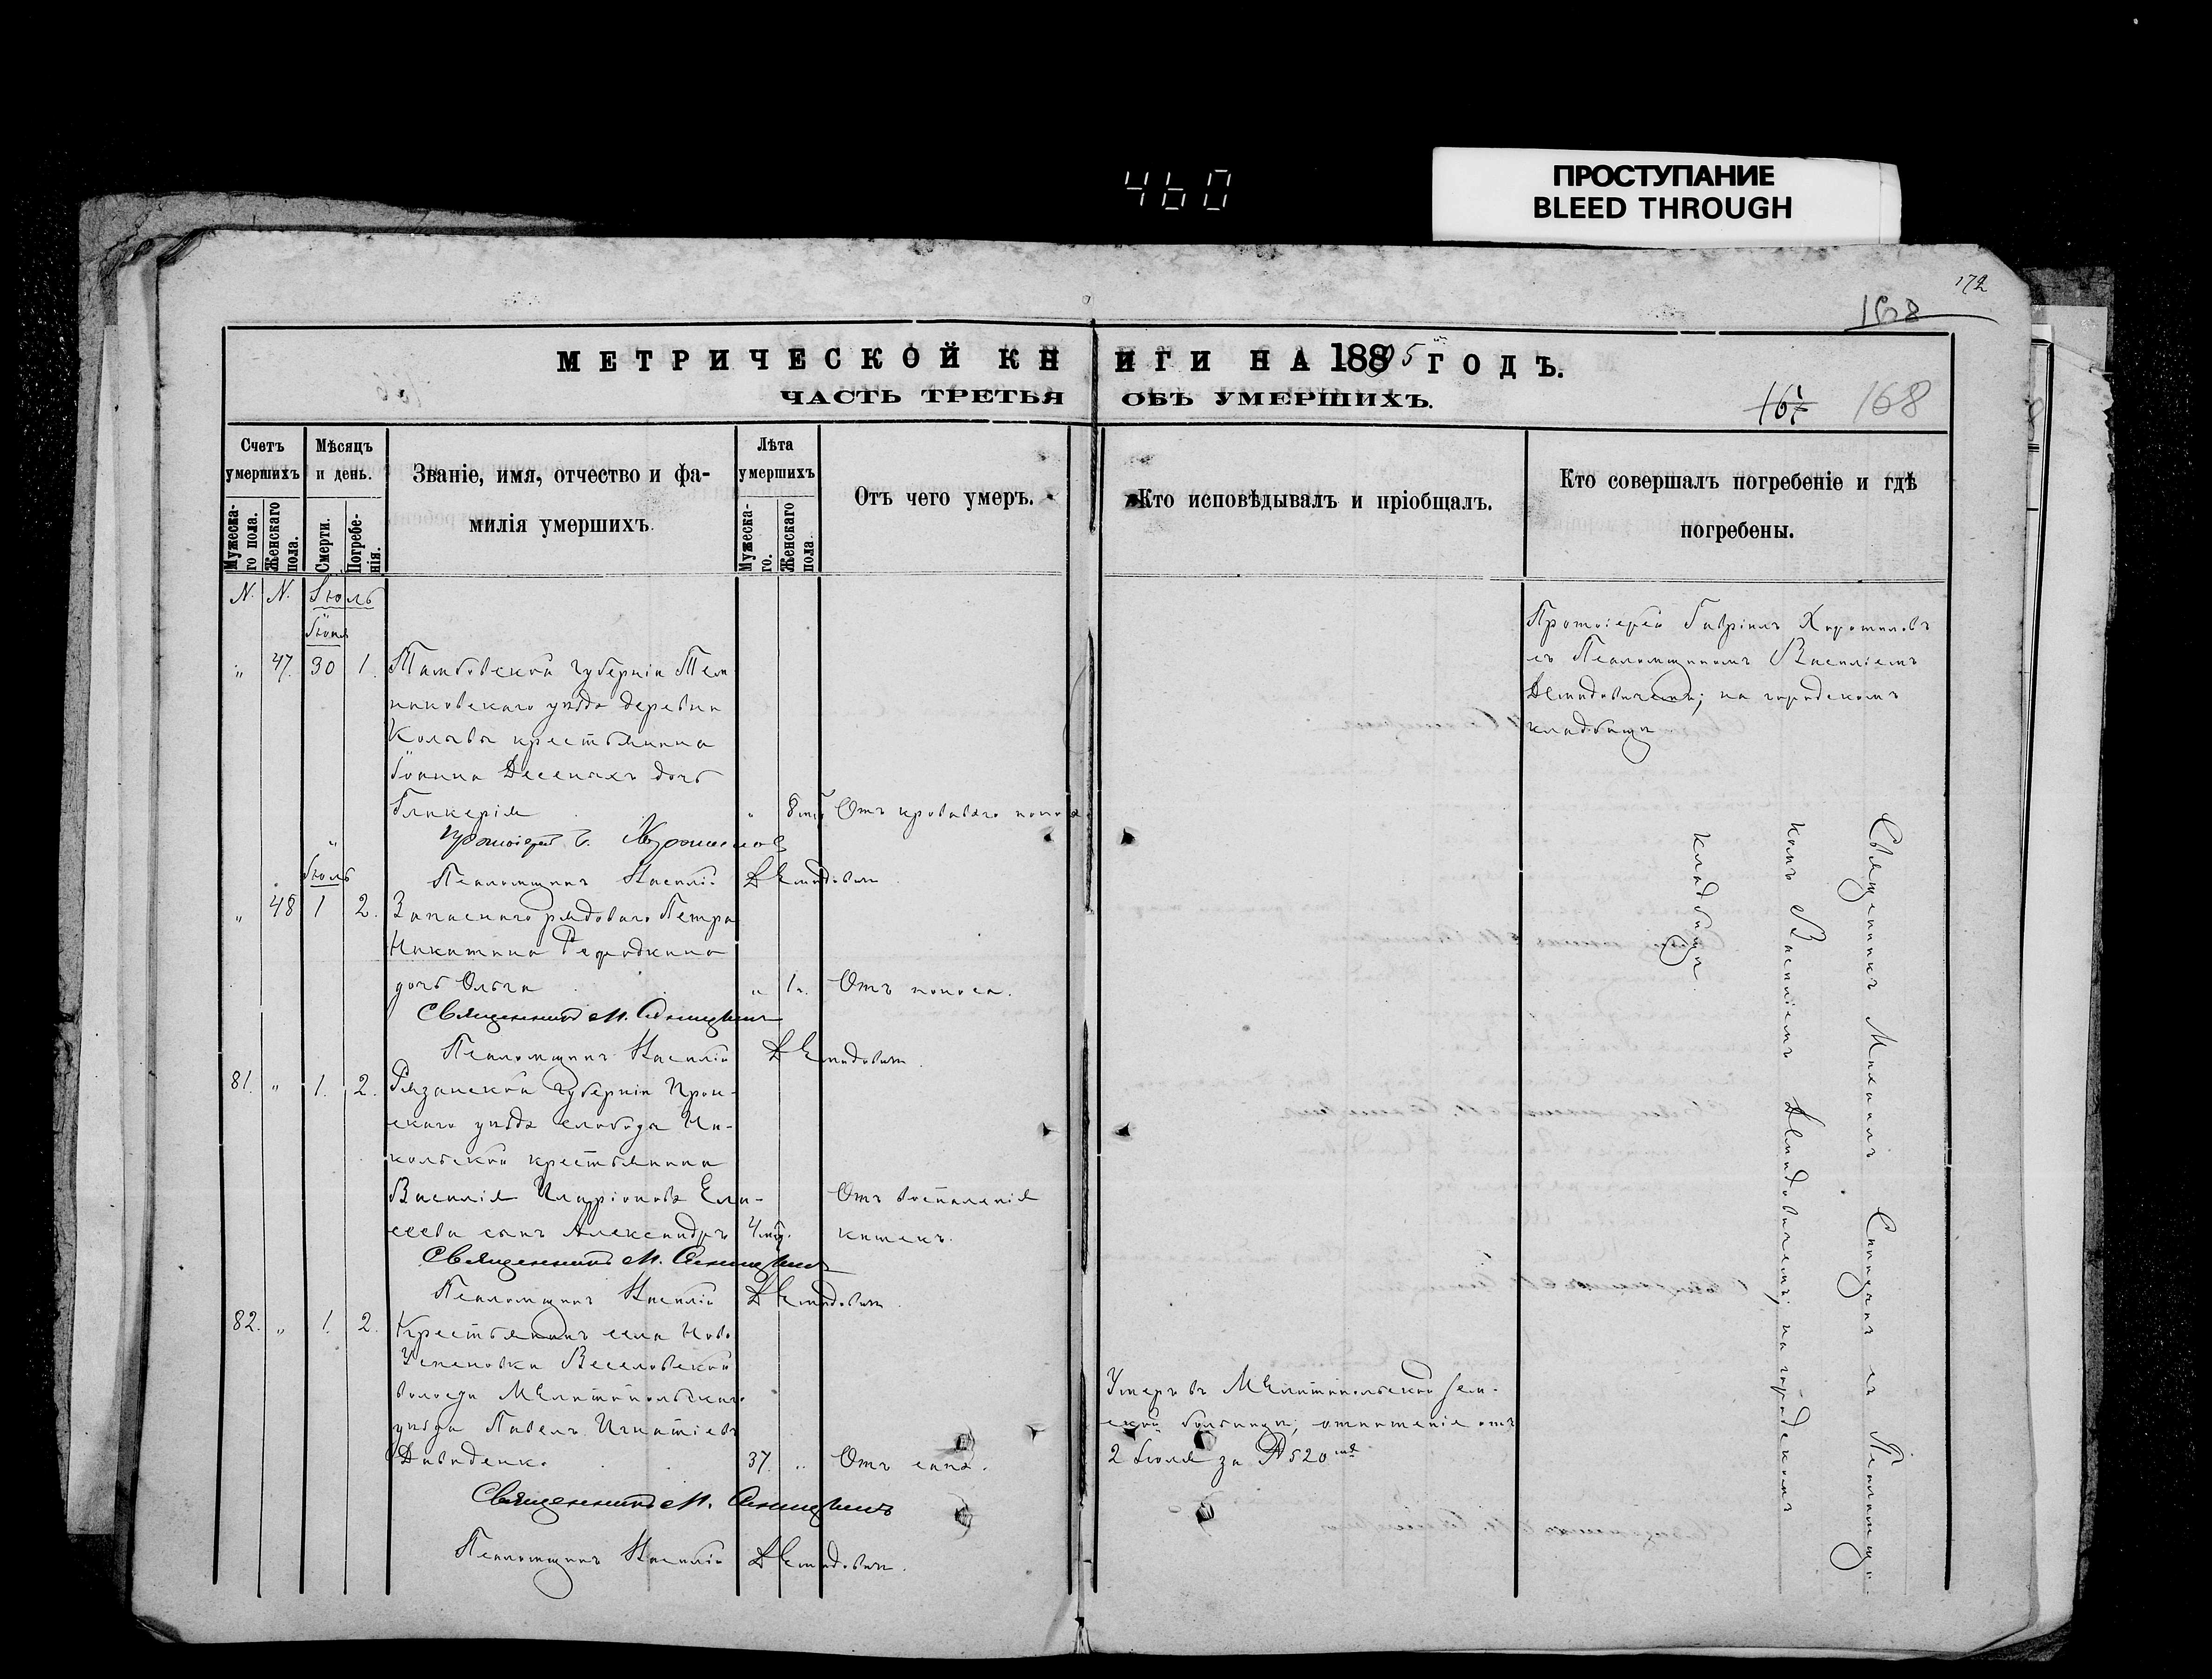 460
ПРОСТУПАНИЕ
BLEED THROUGH
172
168
МЕТРИЧЕСКОЙ КНИГИ НА 1885 ГОДЪ.
ЧАСТЬ ТРЕТЬЯ ОБЪ УМЕРШИХЪ.
167 168
Счетъ умершихъ
Мужеска-го пола.
Женскаго пола.
Мѣсяцъ и день.
Смерти.
Погребе-нія.
Званіе, имя, отчество и фа-
милія умершихъ.
Лѣта умершихъ
Мужеска-го.
Женскаго пола.
Отъ чего умеръ.
Кто исповѣдывалъ и пріобщалъ.
Кто совершалъ погребеніе и гдѣ
погребены.
N. N. Іюль
Іюня
" 47. 30 1. Тамбовской губерніи Тем
никовскаго уѣзда деревни
крестьянина
Іоанна дочь
Гликерія " 8 мѣ Отъ кроваваго поноса
Протоіерей Г. Хорошиловъ
Псаломщикъ Василій Демидовичъ
Протоіерей Гавріилъ Хорошиловъ
съ Псаломщикомъ Василіемъ
Демидовичемъ; на городскомъ
кладбищѣ
Іюль
" 48 1 2. Запаснаго рядоваго Петра
Никитина
дочь Ольга " 1 г. Отъ поноса.
Священникъ М. Синицынъ
Псаломщикъ Василій Демидовичъ.
81. " 1. 2. Рязанской губерніи Прон-
скаго уѣзда слободы Ни-
кольской крестьянина
Василія Иларіонова Ели-
сеева сынъ Александръ 4 мѣ. Отъ воспаленія
кишекъ.
Священникъ М. Синицынъ
Псаломщикъ Василій Демидовичъ.
82. " 1. 2. Крестьянинъ села Ново
Успеновки Веселовской
волости Мелитопольскаго
уѣзда Павелъ Игнатіевъ
Давиденко. 37. " Отъ сапа.
Священникъ М. Синицынъ
Псаломщикъ Василій Демидовичъ.
Умеръ въ Мелитопольской Зем-
ской больницѣ; отношеніе отъ
2 Іюля за № 520 мъ
Священникъ Михаилъ Синицынъ съ Псаломщи-
комъ Василіемъ Демидовичемъ; на городскомъ
кладбищѣ.